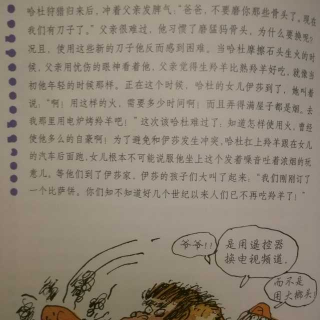 哈杜狩猎归来后，冲着父亲发脾气，“爸爸，不要磨你那些骨头了。现在
我们有刀子了。”父亲很难过，他习惯了磨猛犸骨头。为什么要换呢？
况且，使用这些新的刀子他反而感到困难。当哈杜磨擦石头生火的时
候，父亲用忧伤的眼神看着他，父亲觉得生羚羊比熟羚羊好吃，就像当
初他年轻的时候那样。正在这个时候，哈杜的女儿伊莎到了，她叫着
说：“啊！用这样的火，需要多少时间啊！而且弄得满屋子都是烟。去
我那里用电炉烤羚羊吧！”这次该哈杜难过了：知道怎样使用火，曾经
使他多么的自豪啊！为了避免和伊莎发生冲突，哈杜扛上羚羊跟在女儿
的汽车后面跑，女儿根本不可能说服他坐上这个发着噪音吐着浓烟的玩
意儿。等他们到了伊莎家，伊莎的孩子们大叫了起来，“我们刚刚订了
一个比萨饼。你们知不知道好几个世纪以来人们已不再吃羚羊了！”
爷爷！！
是用遥控器
换电视频道，
而不是
用大榔头！